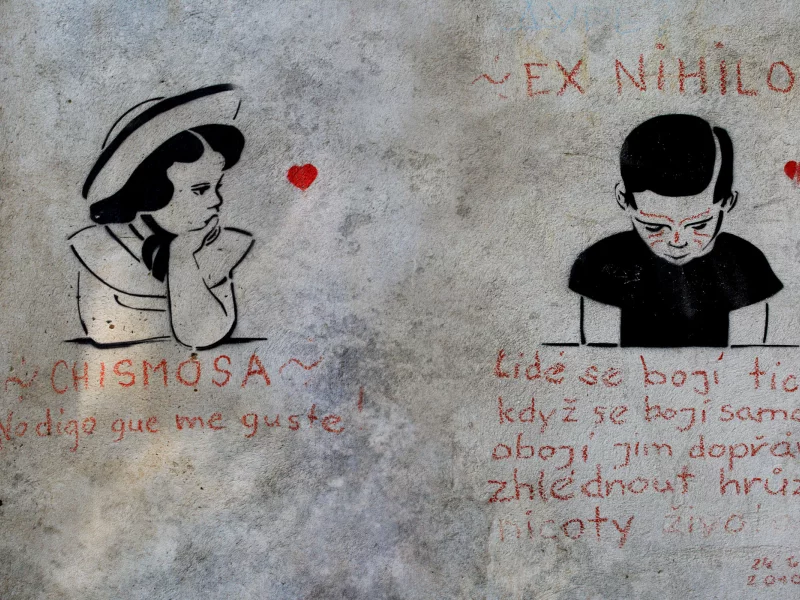 ~ CHISMOSA ~
No digo que me guste!
~ EX NIHILO
Lidé se bojí tic
když se bojí samo
obojí jim dopřáv
zhlédnout hrůz
nicoty život